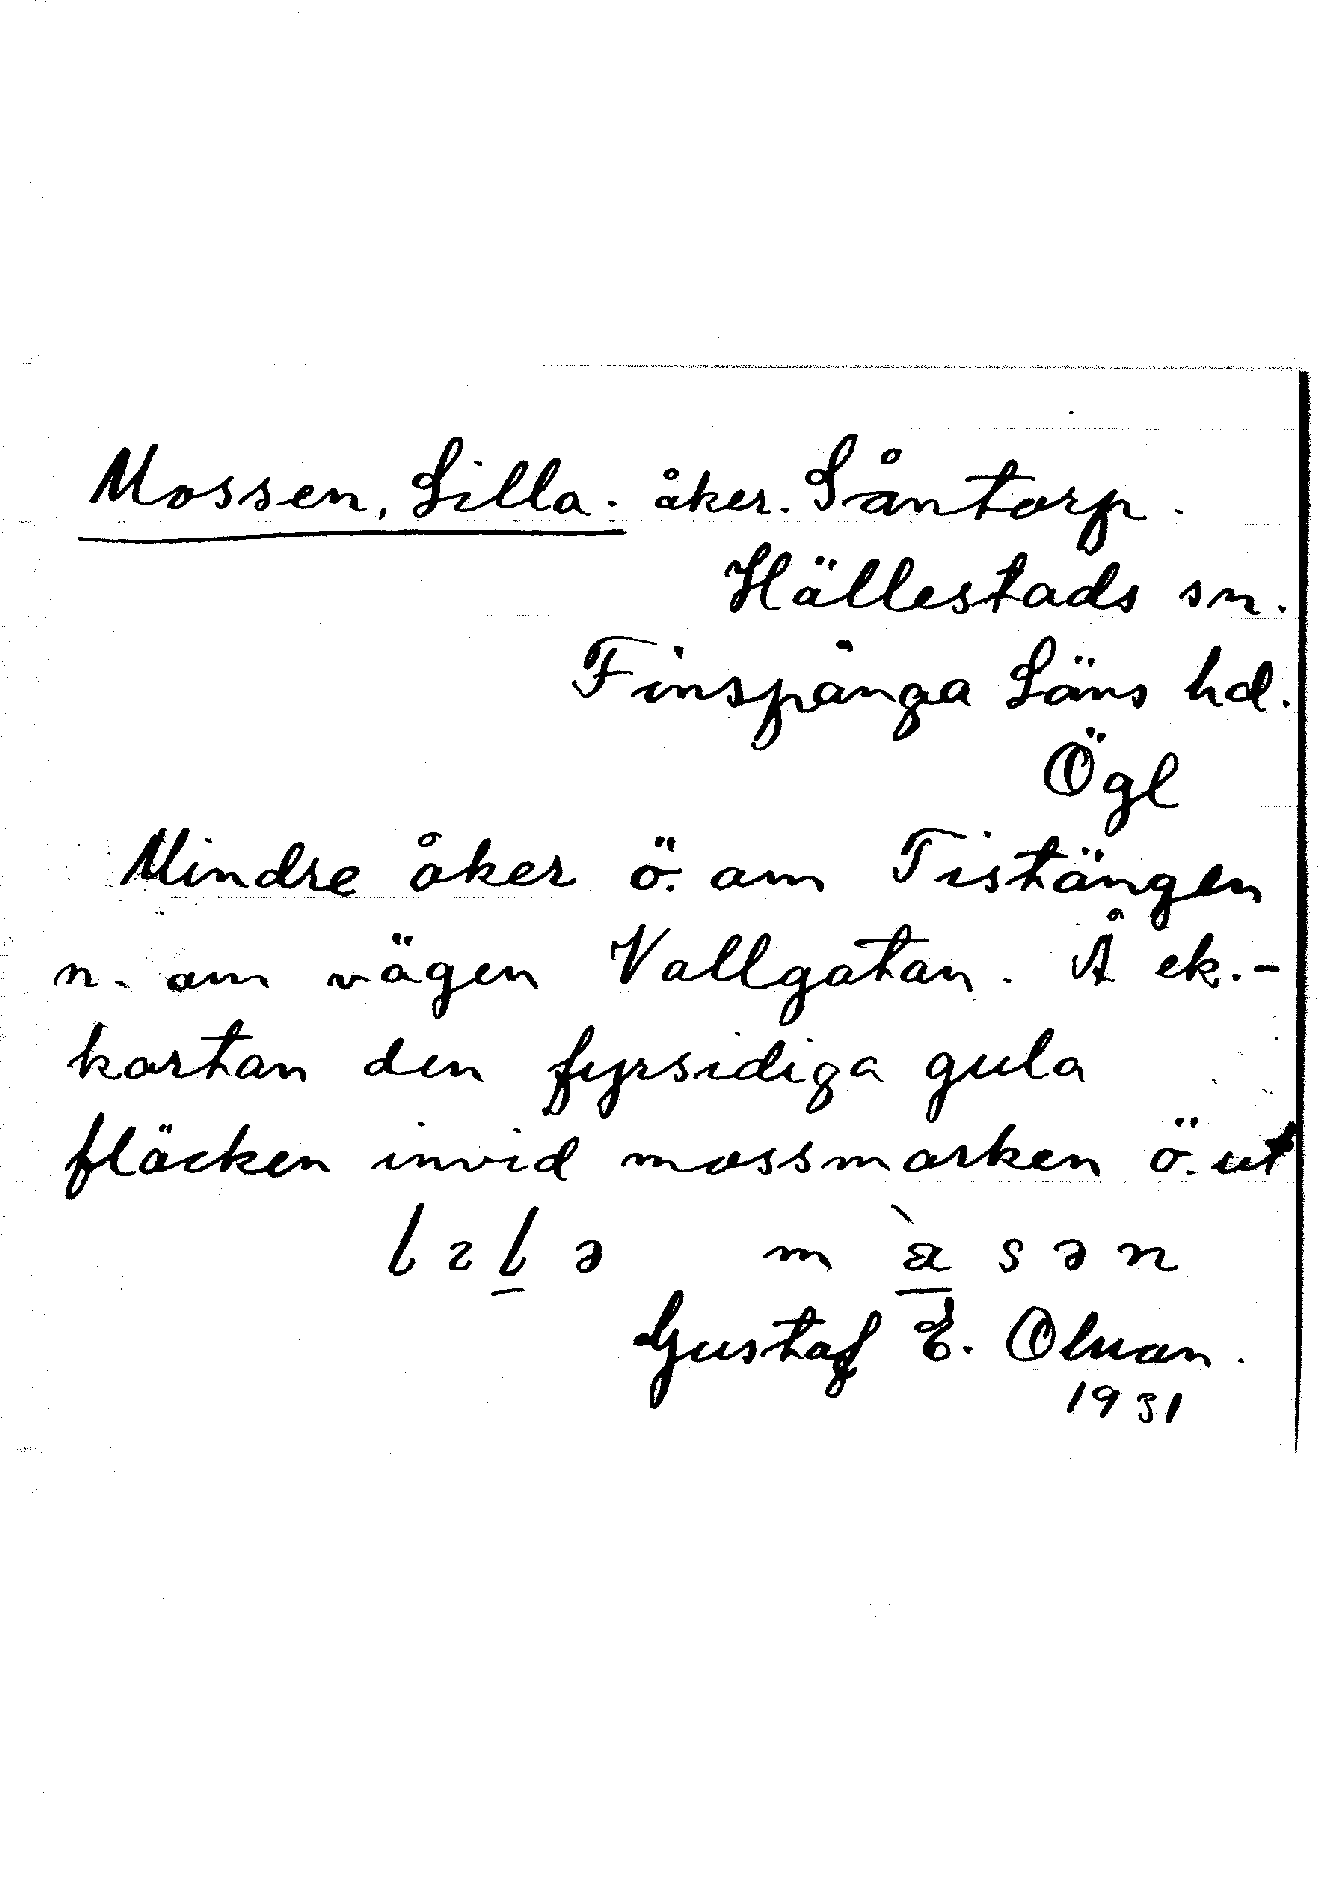 Mossen, Lilla. åker. Låntorp.
Hällestads sn.
Finspånga Läns hd.
Ögl
Mindre åker ö. om Tistängen
n. om vägen Vallgatan. Å ek.-
kartan den fyrsidiga gula
fläcken invid mossmarken ö. ut
Gustaf E. Olsson.
1931